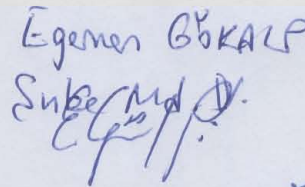 Egemen GÖKALP
Şube Md. V.